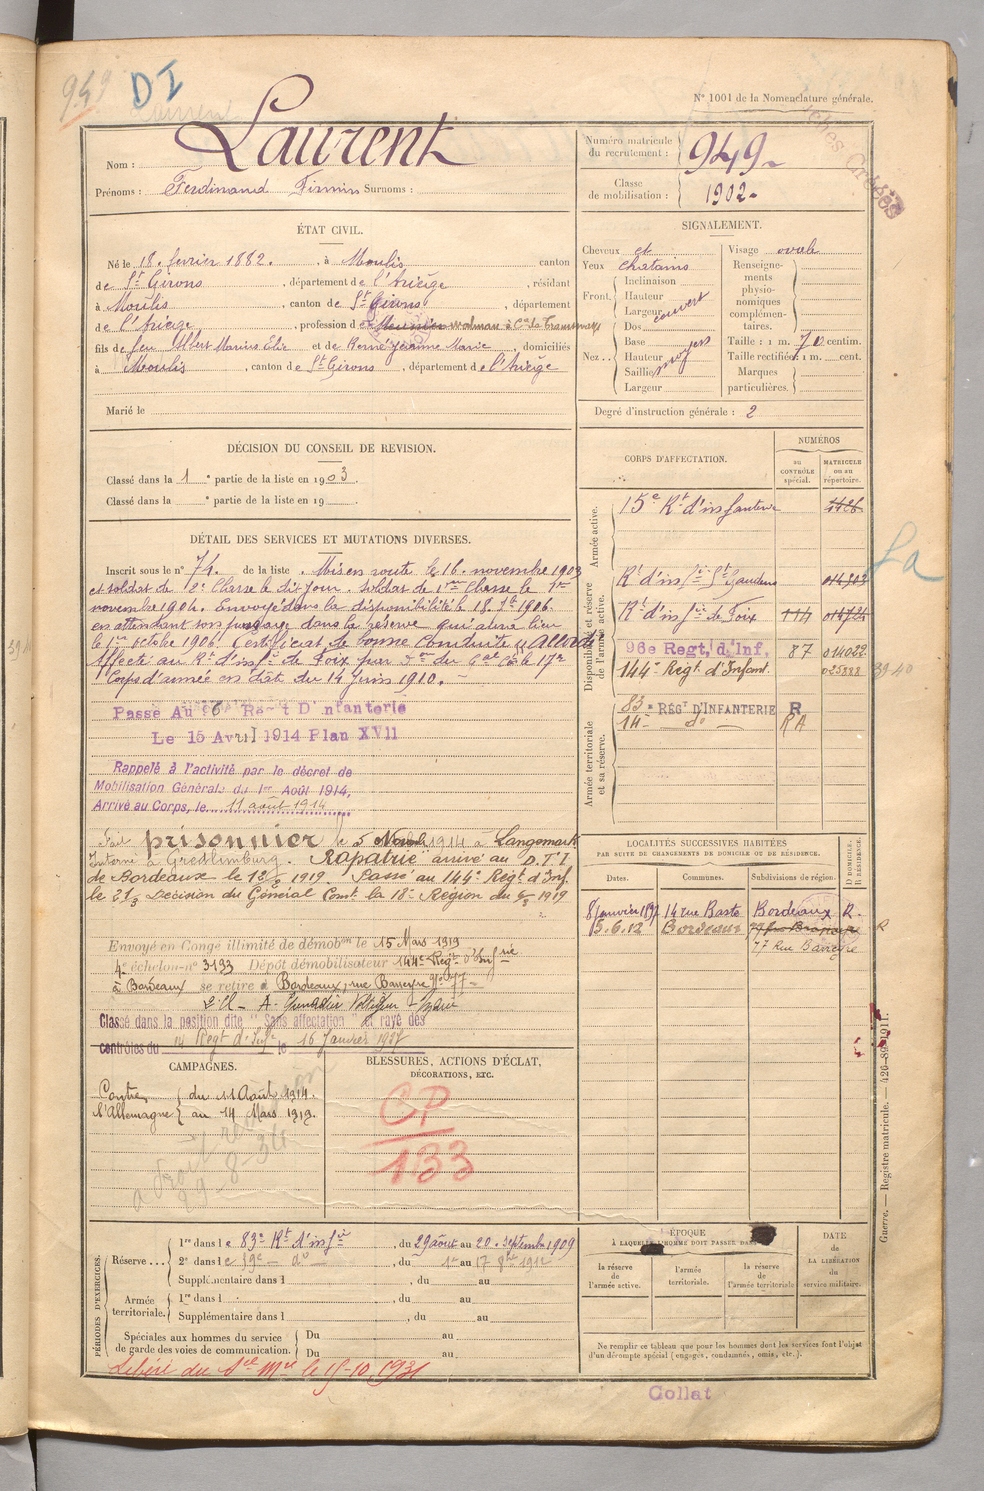 949
DI
Laurent
N° 1001 de la Nomenclature générale.
Nom : Laurent
Prénoms : Ferdinand Firmin Surnoms :
Numéro matricule du recrutement : 949
Classe de mobilisation : 1902
ÉTAT CIVIL.
Né le 18 février 1882, à Moulis canton
de St Girons, département de l'Ariège, résidant
à Moulis, canton de St Girons, département
de l'Ariège, profession de Meunier
fils de feu Albert Marius Elie et de Jeanne Marie, domiciliés
à Moulis, canton de St Girons, département de l'Ariège
Marié le
SIGNALEMENT.
Cheveux et
Yeux chatains
Front
Inclinaison
Hauteur
Largeur
couvert
Nez
Dos
Base
Hauteur
Saillie
Largeur
moyen
Visage ovale
Renseignements physionomiques complémentaires.
Taille : 1 m. 70 centim.
Taille rectifiée : 1 m. cent.
Marques particulières.
Degré d'instruction générale : 2
DÉCISION DU CONSEIL DE REVISION.
Classé dans la 1e partie de la liste en 1903.
Classé dans la e partie de la liste en 19
DÉTAIL DES SERVICES ET MUTATIONS DIVERSES.
Inscrit sous le n° 74 de la liste. Mis en route le 16 novembre 1903
et soldat de 2e classe le dit jour. Soldat de 1ere Classe le 1er
novembre 1904. Envoyé dans la disponibilité le 18 1906
en attendant son passage dans la réserve qui a lieu
le 1er octobre 1906. Certificat de bonne conduite "Accordé"
Affecté au Rt d'infie de Foix par du Gal Ct le 17e
Corps d'armée en date du 14 Juin 1910.
Passé Au 96 Regt D'Infanterie
Le 15 Avril 1914 Plan XVII
Rappelé à l'activité par le décret de
Mobilisation Générale du 1er Août 1914,
Arrivé au Corps, le 11 août 1914
Fait prisonnier le 5 1914 à Langemark
Interné à Gredlimburg. "Rapatrié" arrivé au D.T.I
de Bordeaux le 12 1919. Passé au 144e Regt d'Inf.
le 21/3 Décision du Général Comt la 18e Région du 6/3 1919
Envoyé en Congé illimité de démobon le 15 Mars 1919
4e échelon n° 3193 Dépôt démobilisateur 144e Regt d'Infrie
à Bordeaux se retire à Bordeaux, rue Barreyre N° 77
Classé dans la position dite "Sans affectation" et rayé des
contrôles du 14 Regt d'Infie le 16 Janvier 1927
CORPS D'AFFECTATION.
NUMÉROS
au CONTRÔLE spécial.
MATRICULE ou au répertoire.
Armée active.
15e Rt d'infanterie 1426
Disponibilité et réserve de l'armée active.
Rt d'infie St Gaudens
Rt d'infie de Foix
96e Regt, d'Inf, 87 014022
144e Regt d'Infant. 025888
39-40
Armée territoriale et sa réserve.
83e RÉGt D'INFANTERIE R
14e do RA
LOCALITÉS SUCCESSIVES HABITÉES
PAR SUITE DE CHANGEMENTS DE DOMICILE OU DE RÉSIDENCE.
D DOMICILE. R RÉSIDENCE.
Dates.
Communes.
Subdivisions de région.
8 Janvier 14 rue Baste Bordeaux R.
13.6.12 Bordeaux R
77 Rue Barreyre
CAMPAGNES.
Contre l'Allemagne
du 11 Août 1914.
au 14 Mars 1919.
BLESSURES, ACTIONS D'ÉCLAT,
DÉCORATIONS, ETC.
CP
133
PÉRIODES D'EXERCICES.
Réserve
1re dans le 83e Rt d'infie, du 29 août au 20 Septembre 1909
2e dans le 59e do, du 1er au 17 8bre 1912
Supplémentaire dans l , du au
Armée territoriale.
1re dans l , du au
Supplémentaire dans l , du au
Spéciales aux hommes du service
de garde des voies de communication.
Du au
Du au
Libéré du Sce Mre le 15-10-1931
ÉPOQUE
À LAQUELLE L'HOMME DOIT PASSER DANS
la réserve de l'armée active.
l'armée territoriale.
la réserve de l'armée territoriale
DATE
de
LA LIBÉRATION
du
service militaire.
Ne remplir ce tableau que pour les hommes dont les services font l'objet
d'un décompte spécial (engagés, condamnés, omis, etc.).
Collat
Guerre. — Registre matricule. — 426-89-1911.